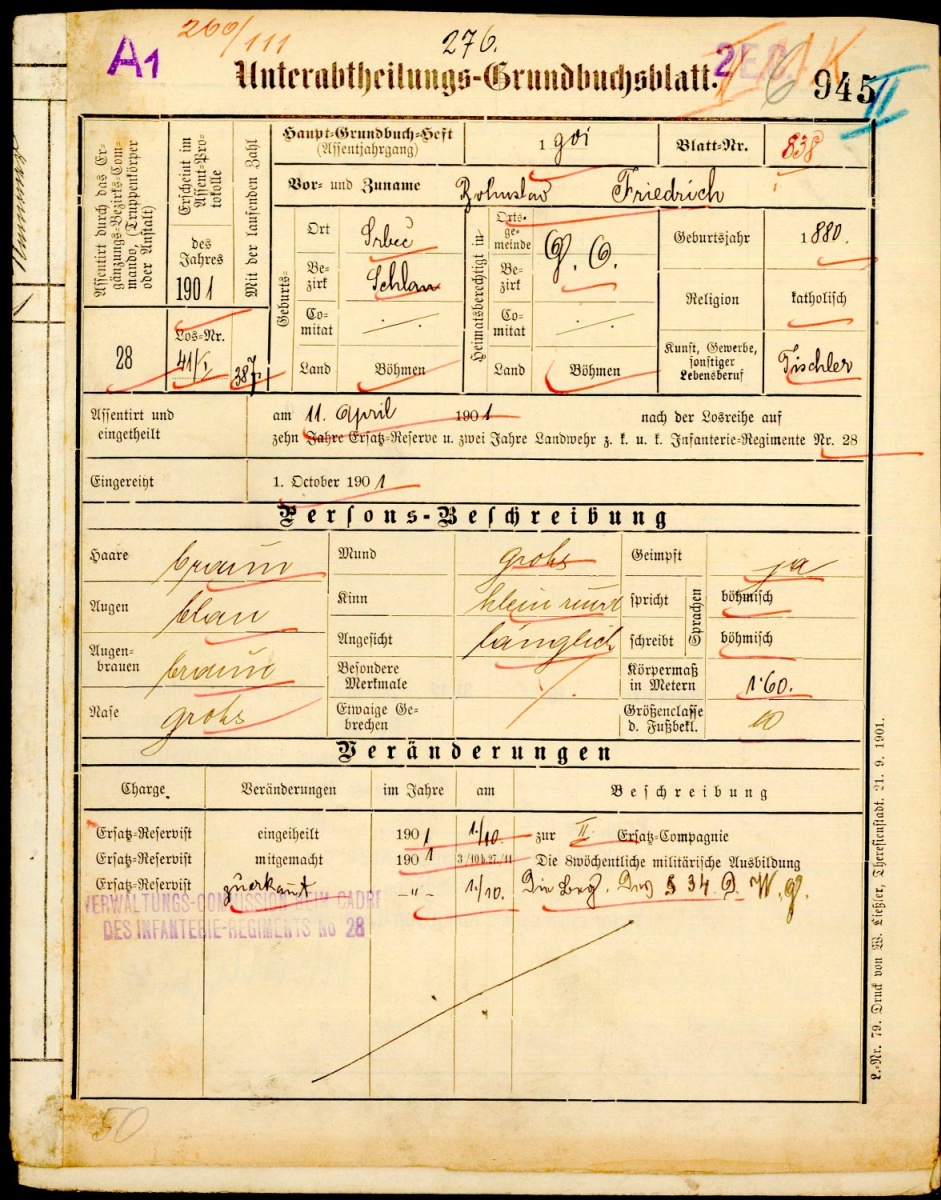 A1
260/111
276.
2 E.C.
6
945
II
Unterabtheilungs-Grundbuchsblatt.
Assentirt durch das Er-
gänzungs-Bezirks-Com-
mando, (Truppenkörper
oder Anstalt)
28
Erscheint im
Assent-Pro-
tokolle
des
Jahres
1901
Los-Nr.
41/I
Mit der laufenden Zahl
387
Haupt-Grundbuch-Heft
(Assentjahrgang)
1 901
Blatt-Nr.
838
Vor- und Zuname
Bohuslav Friedrich
Geburts-
Ort Srbeč
Be-
zirk
Schlan
Co-
mitat
Land Böhmen
Heimatsberechtigt in
Orts-
ge-
meinde
G. O.
Be-
zirk
Co-
mitat
Land Böhmen
Geburtsjahr 1880.
Religion katholisch
Kunst, Gewerbe,
sonstiger
Lebensberuf
Tischler
Assentirt und
eingetheilt
am 11. April 1901 nach der Losreihe auf
zehn Jahre Ersatz-Reserve u. zwei Jahre Landwehr z. k. u. k. Infanterie-Regimente Nr. 28
Eingereiht 1. October 1901
Persons-Beschreibung
Haare braun
Augen blau
Augen-
brauen
braun
Nase grohs
Mund grohs
Kinn klein rund
Angesicht länglich
Besondere
Merkmale
Etwaige Ge-
brechen
Geimpft ja
Sprachen
spricht böhmisch
schreibt böhmisch
Körpermaß
in Metern
1·60.
Größenclasse
d. Fußbekl.
10
Veränderungen
Charge. Veränderungen im Jahre am Beschreibung
Ersatz-Reservist eingeiheilt 1901 1./10. zur II. Ersatz-Compagnie
Ersatz-Reservist mitgemacht 1901 3/10 b. 27./11 Die 8wöchentliche militärische Ausbildung
Ersatz-Reservist zuerkannt -"- 1./10. Die Beg. des § 34. D. W. g.
VERWALTUNGS-COMMISSION BEIM CADRE
DES INFANTERIE-REGIMENTS No 28
L.-Nr. 79. Druck von W. Ließler, Theresienstadt. 21. 9. 1901.
50